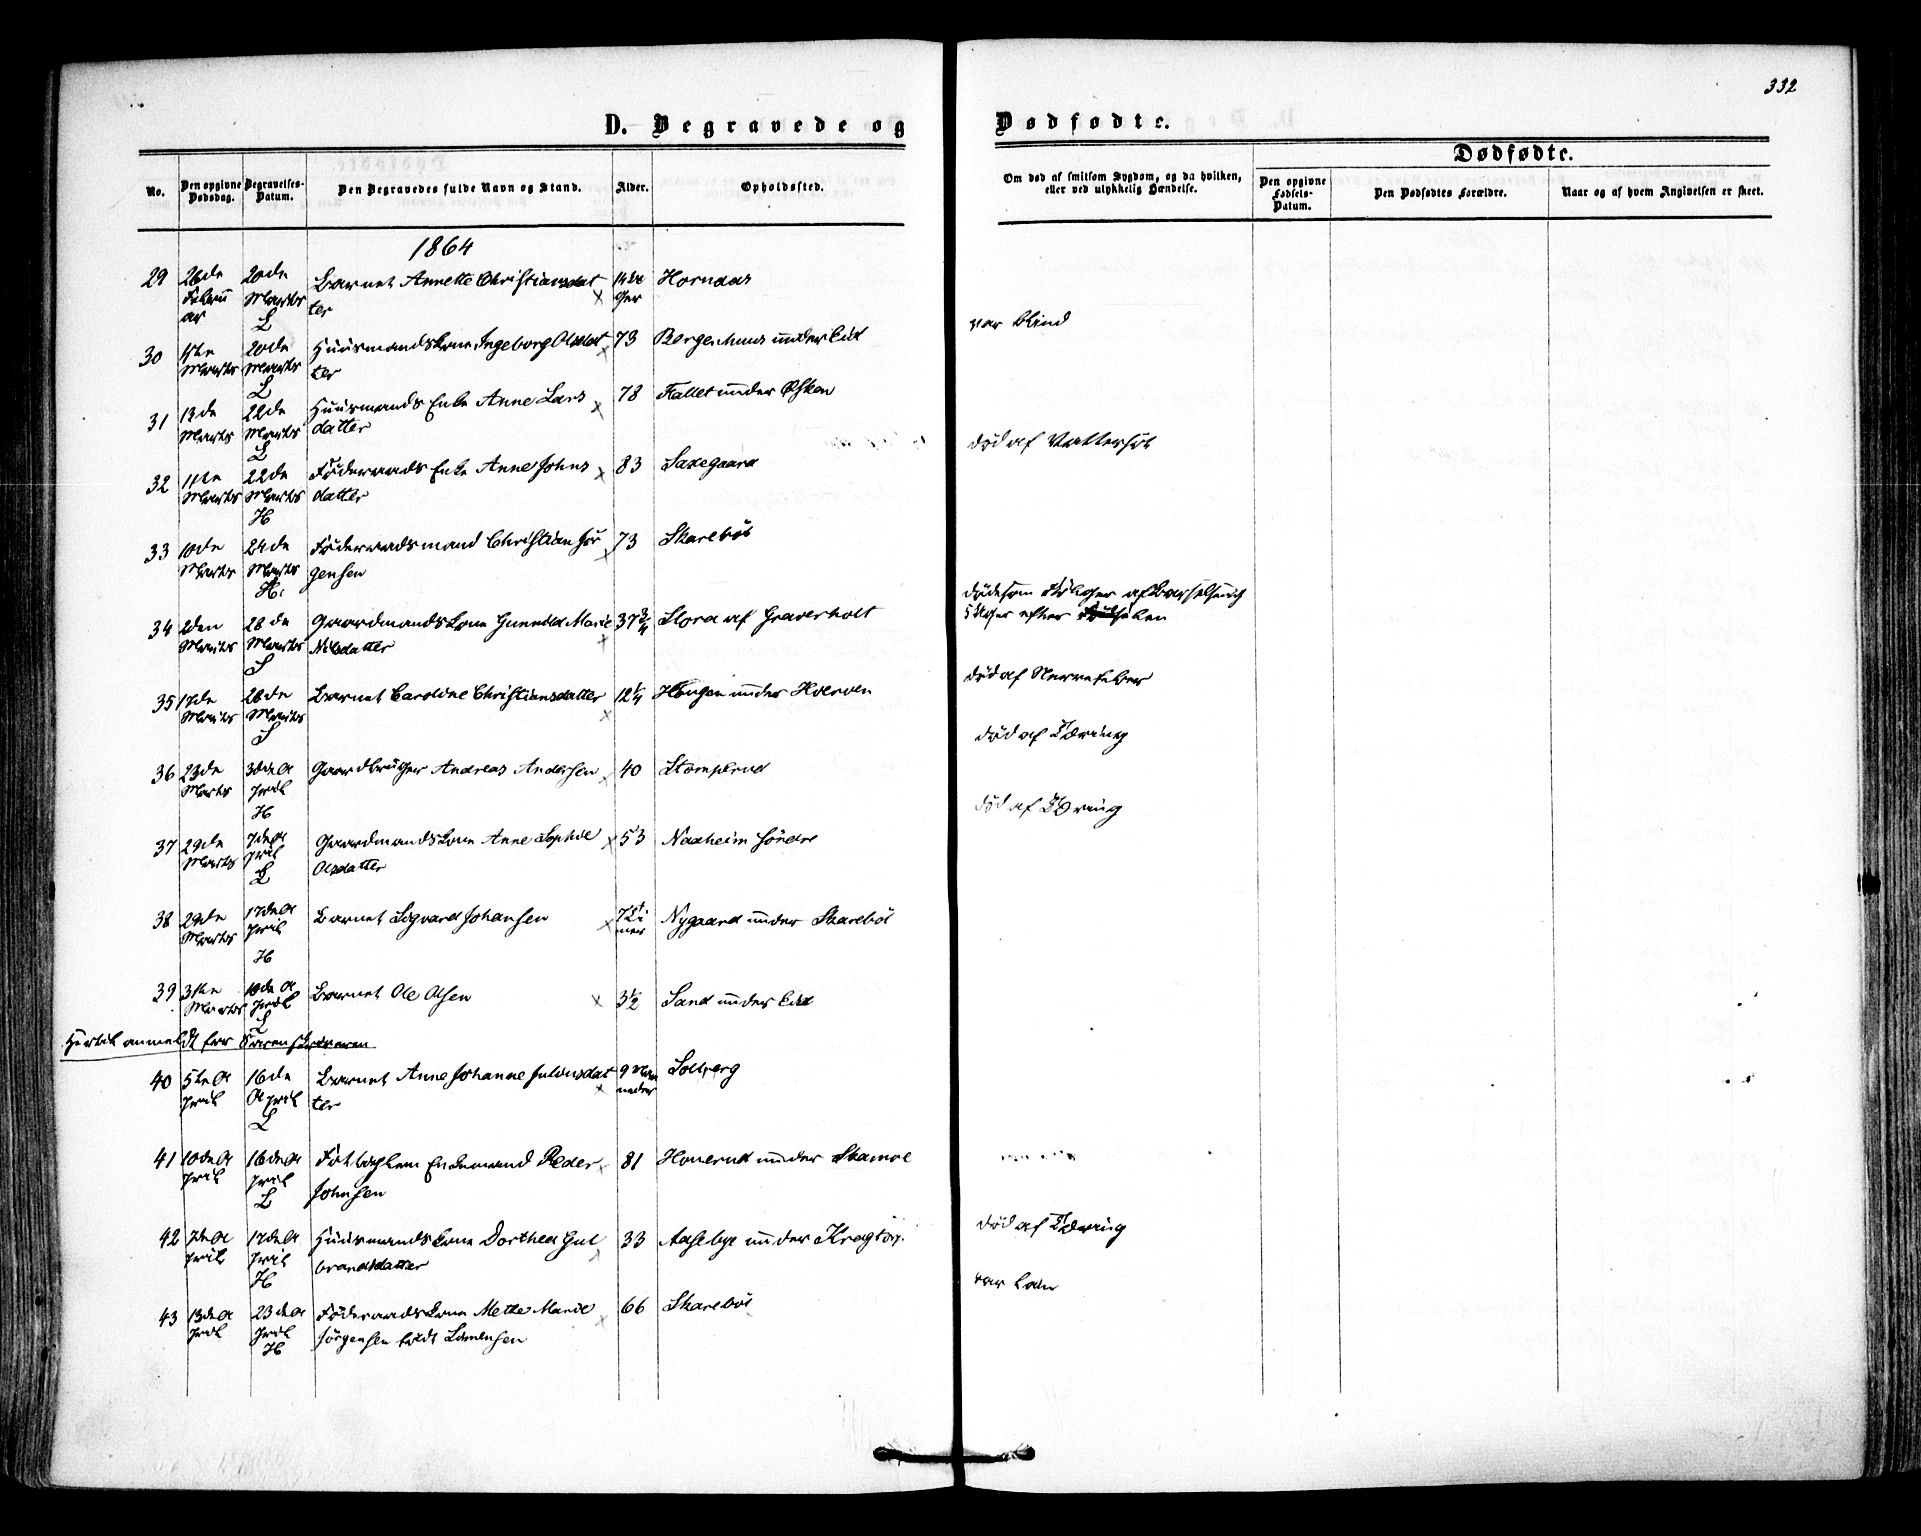 332
D. Begravede og Dødfødte.
No.
Den opgivne Dødsdag.
Begravelses-Datum.
Den Begravedes fulde Navn og Stand.
Alder.
Opholdssted.
Om død af smitsom Sygdom, og da hvilken,
eller ved ulykkelig Hændelse.
Dødfødte.
Den opgivne Fødsels-Datum.
Den Dødfødtes Forældre.
Naar og af hvem Angivelsen er skeet.
1864
29 26de Februar 20de Marts L Barnet Annette Christiansdat
ter 14 Da
ger Horndas
30 15te Marts 20de Marts L Huusmandskone Ingeborg Olsdat
ter 73 Bergenhuus under Eid var blind
31 13de Marts 22de Marts L Huusmands Enke Anne Lars
datter 78 Fallet under Østen
32 11te Marts 22de Marts H Föderaads Enke Anne Johns
datter 83 Saxegaard død af Vattersot
33 10de Marts 24de Marts H. Föderaadsmand Christian Jör
gensen 73 Skareböl
34 2den Marts 28de Marts S Gaardmandskone Gunnild Marie
Nilsdatter 37 3/4 Stora af Graverholt dødsom Fölger af Barselseng
5 Uger efter Födselen
35 17de Marts 28de Marts S Barnet Caroline Christiansdatter 12 1/4 Haugen under Hverven død af Nervefeber
36 23de Marts 3die April H Gaardbruger Andreas Andersen 40 Stomperud død af Tæring
37 29de Marts 7de April L Gaardmandskone Anne Sophie
Olsdatter 53 Naxheim söndre død af Tæring
38 29de Marts 17de April H Barnet Sigvard Johansen 7 Ti
mer Nygaard under Skareböl
39 31te Marts 10de April L Barnet Ole Olsen 3 1/2 Sand under Eid
Hertil anmeldt for Sorenskriveren
40 5te April 16de April L Barnet Anne Johanne Juliusdat
ter 9 Maa
neder Solberg
41 10de April 16de April L Enkemand Peder
Johnsen 81 Honerud under Skamol
42 7de April 17de April H Huusmandskone Dorthea Gul
brandsdatter 33 Aasebye under Kragtorp. død af Tæring
43 13de April 23de April H Föderaadskone Mette Marie
Jörgensen födt Larensen 66 Skareböl var lam